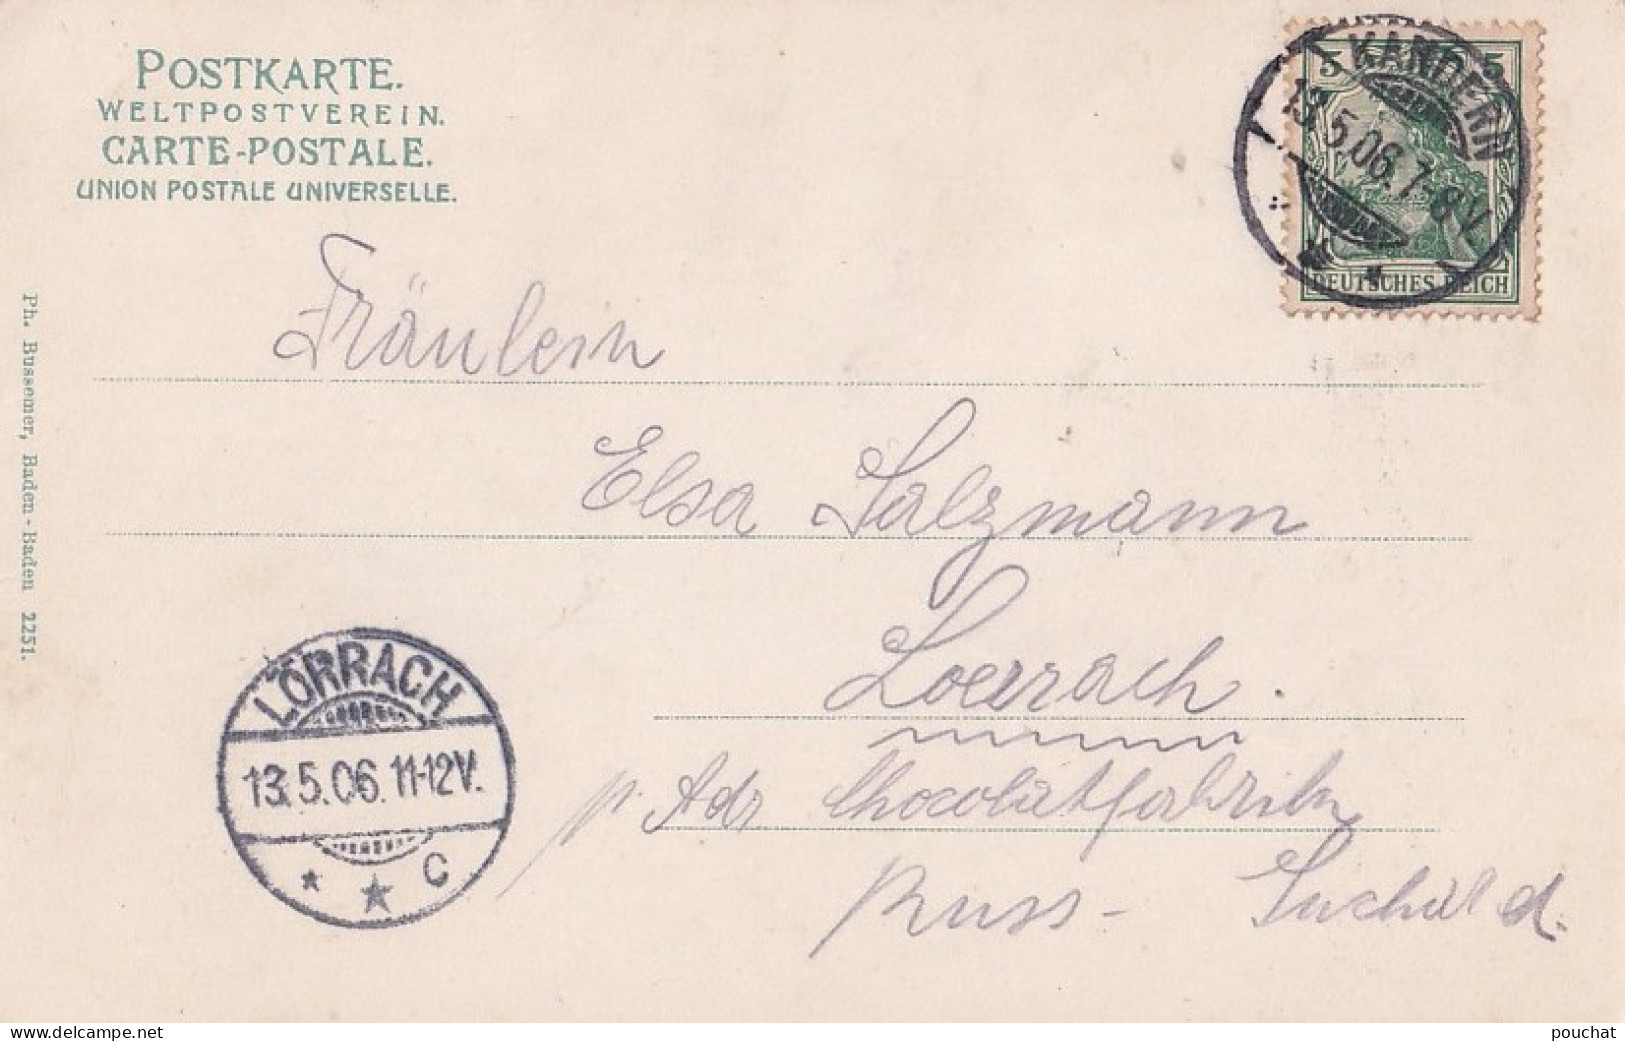 POSTKARTE.
WELTPOSTVEREIN.
CARTE-POSTALE.
UNION POSTALE UNIVERSELLE.
KANDERN
13.5.06.7-8V.
5 5
DEUTSCHES REICH
Fräulein
Elsa Salzmann
Loerrach.
p. Adr Chocolatfabrik
Russ- Suchard.
LÖRRACH
13.5.06.11-12V.
* * C
Ph. Bussemer, Baden-Baden 2251.
www.delcampe.net
pouchat